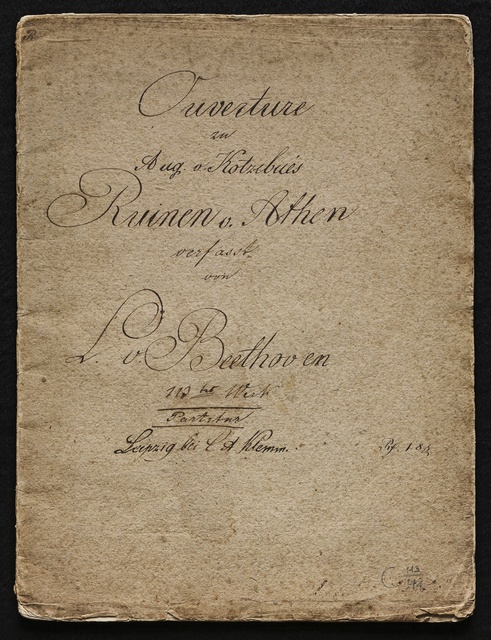 Ouverture
zu
Aug. v. Kotzebue's
Ruinen v. Athen
verfasst
von
L. v Beethoven
113tes Werk
Partitur
Leipzig bei C A Klemm.
113